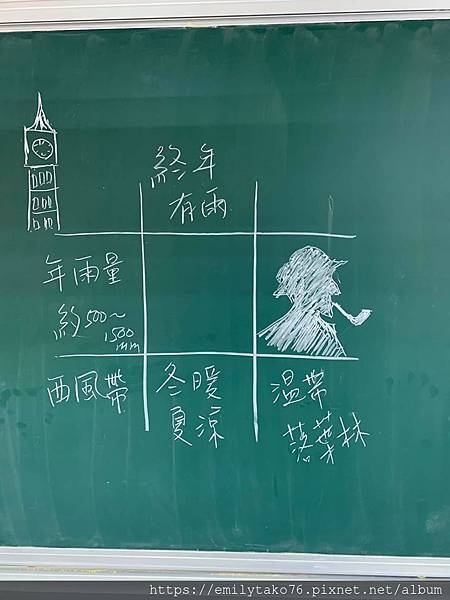 終年
有雨
年雨量
約500~
1500
mm
西風帶
冬暖
夏涼
溫帶
落葉林
https://emilytako76.pixnet.net/album